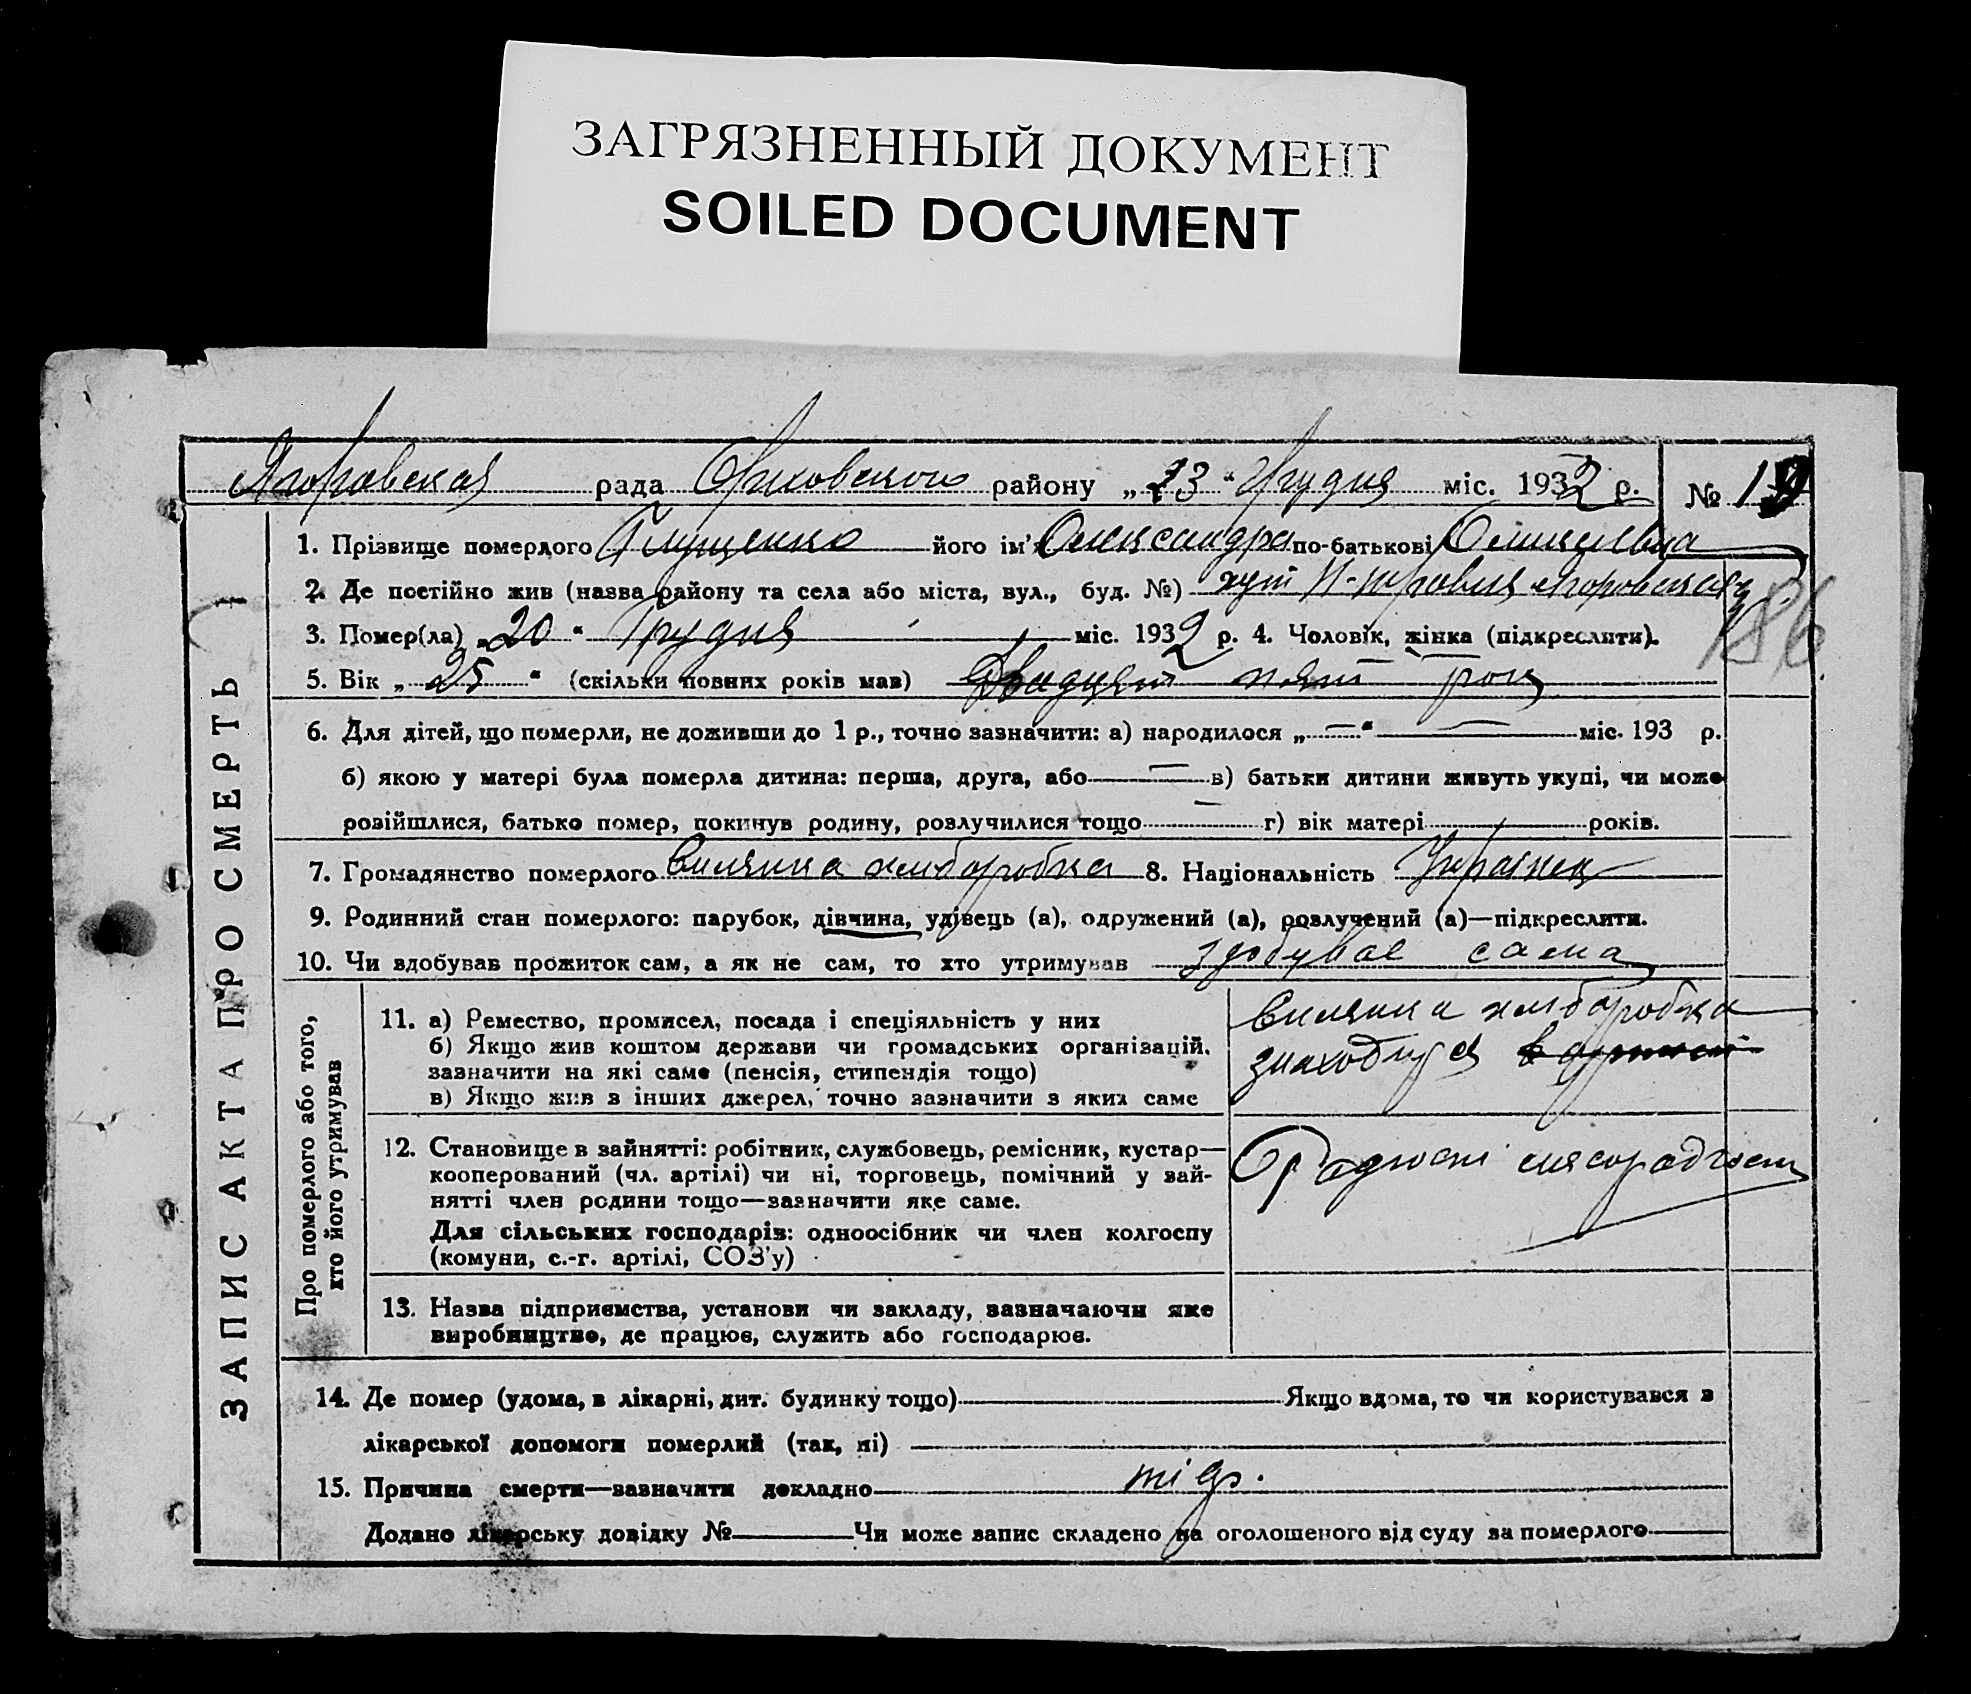 ЗАГРЯЗНЕННЫЙ ДОКУМЕНТ
SOILED DOCUMENT
рада району „23“ Грудня міс. 1932 р. №
1. Прізвище померлого Глущенко його ім'я Олександра по-батькові
2. Де постійно жив (назва району та села або міста, вул., буд. №) хут
186
3. Помер(ла) „20“ Грудня міс. 1932 р. 4. Чоловік, жінка (підкреслити).
5. Вік „25“ (скільки повних років мав) Двадцять пять роц
6. Для дітей, що померли, не доживши до 1 р., точно зазначити: а) народилося „—“ — міс. 193 р.
б) якою у матері була померла дитина: перша, друга, або — в) батьки дитини живуть укупі, чи може
розійшлися, батько помер, покинув родину, розлучилися тощо — г) вік матері років.
7. Громадянство померлого селянка хліборобка 8. Національність Українец
9. Родинний стан померлого: парубок, дівчина, удівець (а), одружений (а), розлучений (а)—підкреслити.
10. Чи здобував прожиток сам, а як не сам, то хто утримував здобуває сама
ЗАПИС АКТА ПРО СМЕРТЬ
Про померлого або того,
хто його утримував
11. а) Ремество, промисел, посада і спеціяльність у них
б) Якщо жив коштом держави чи громадських організацій,
зазначити на які саме (пенсія, стипендія тощо)
в) Якщо жив з інших джерел, точно зазначити з яких саме
селянка хліборобка
знаходится
12. Становище в зайнятті: робітник, службовець, ремісник, кустар—
кооперований (чл. артілі) чи ні, торговець, помічний у зай-
нятті член родини тощо—зазначити яке саме.
Для сільських господарів: одноосібник чи член колгоспу
(комуни, с.-г. артілі, СОЗ'у)
13. Назва підприємства, установи чи закладу, зазначаючи яке
виробництво, де працює, служить або господарює.
14. Де помер (удома, в лікарні, дит. будинку тощо) Якщо вдома, то чи користувався з
лікарської допомоги померлий (так, ні)
15. Причина смерти—зазначити докладно
Додано лікарську довідку № Чи може запис складено на оголошеного від суду за померлого